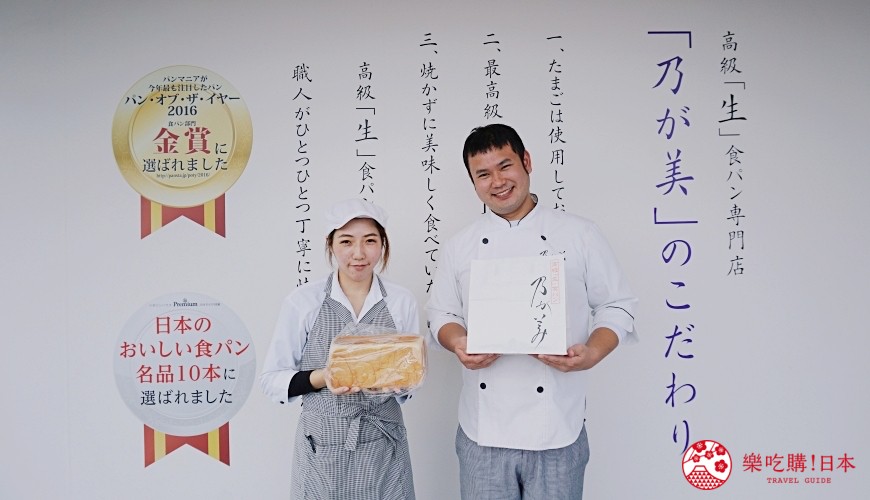 高級「生」食パン専門店
「乃が美」のこだわり
一、たまごは使用してお
二、最高級
三、焼かずに美味しく食べていた
高級「生」食パン
職人がひとつひとつ丁寧に
パンマニアが
今年最も注目したパン
パン・オブ・ザ・イヤー
2016
食パン部門
金賞に
選ばれました
Premium
日本の
おいしい食パン
名品10本に
選ばれました
乃が美
樂吃購!日本
TRAVEL GUIDE